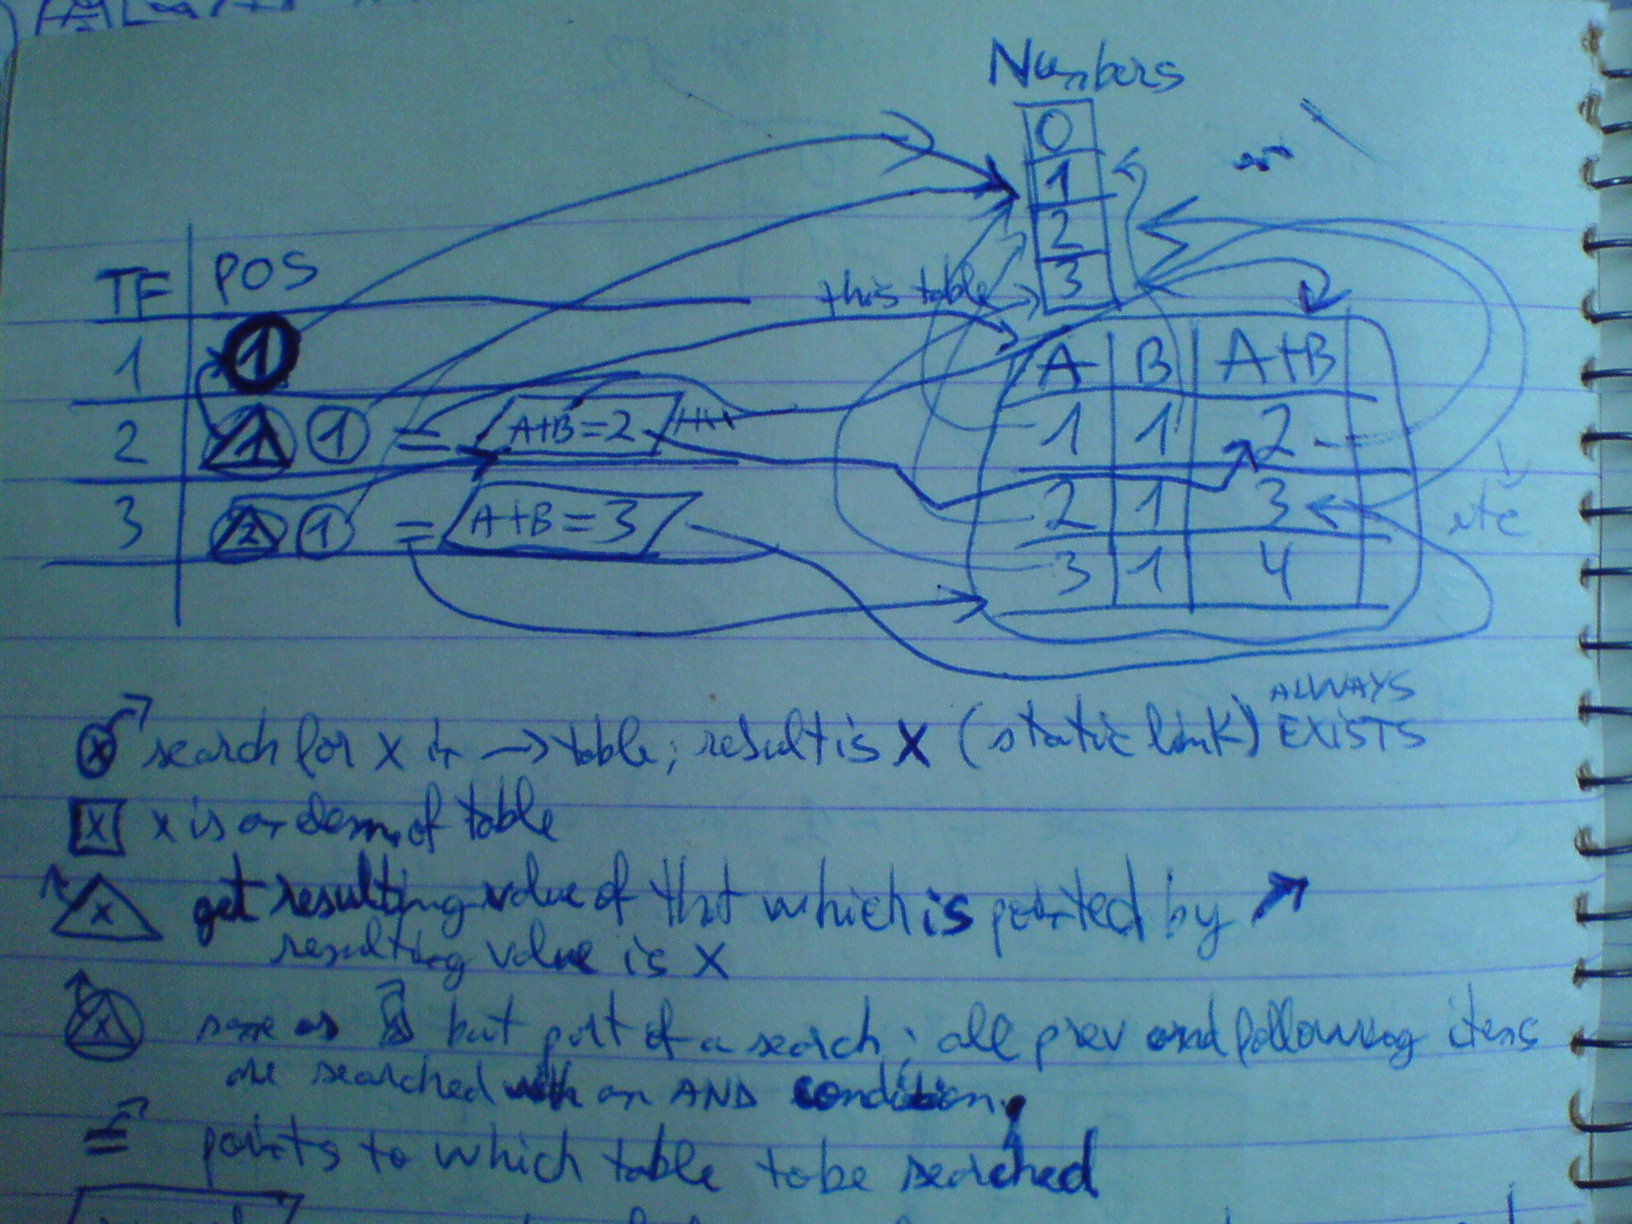 Numbers
0
1
2
3
this table
TF POS
1 1
2 1 1 = A+B=2
3 2 1 = A+B=3
A B A+B
1 1 2
2 1 3
3 1 4
etc
x search for x in → table; result is x (static link) ALWAYS EXISTS
x x is an elem. of table
x get resulting value of that which is pointed by ↗
resulting value is x
x same as but part of a search; all prev and following items
are searched with an AND condition,
= points to which table to be searched